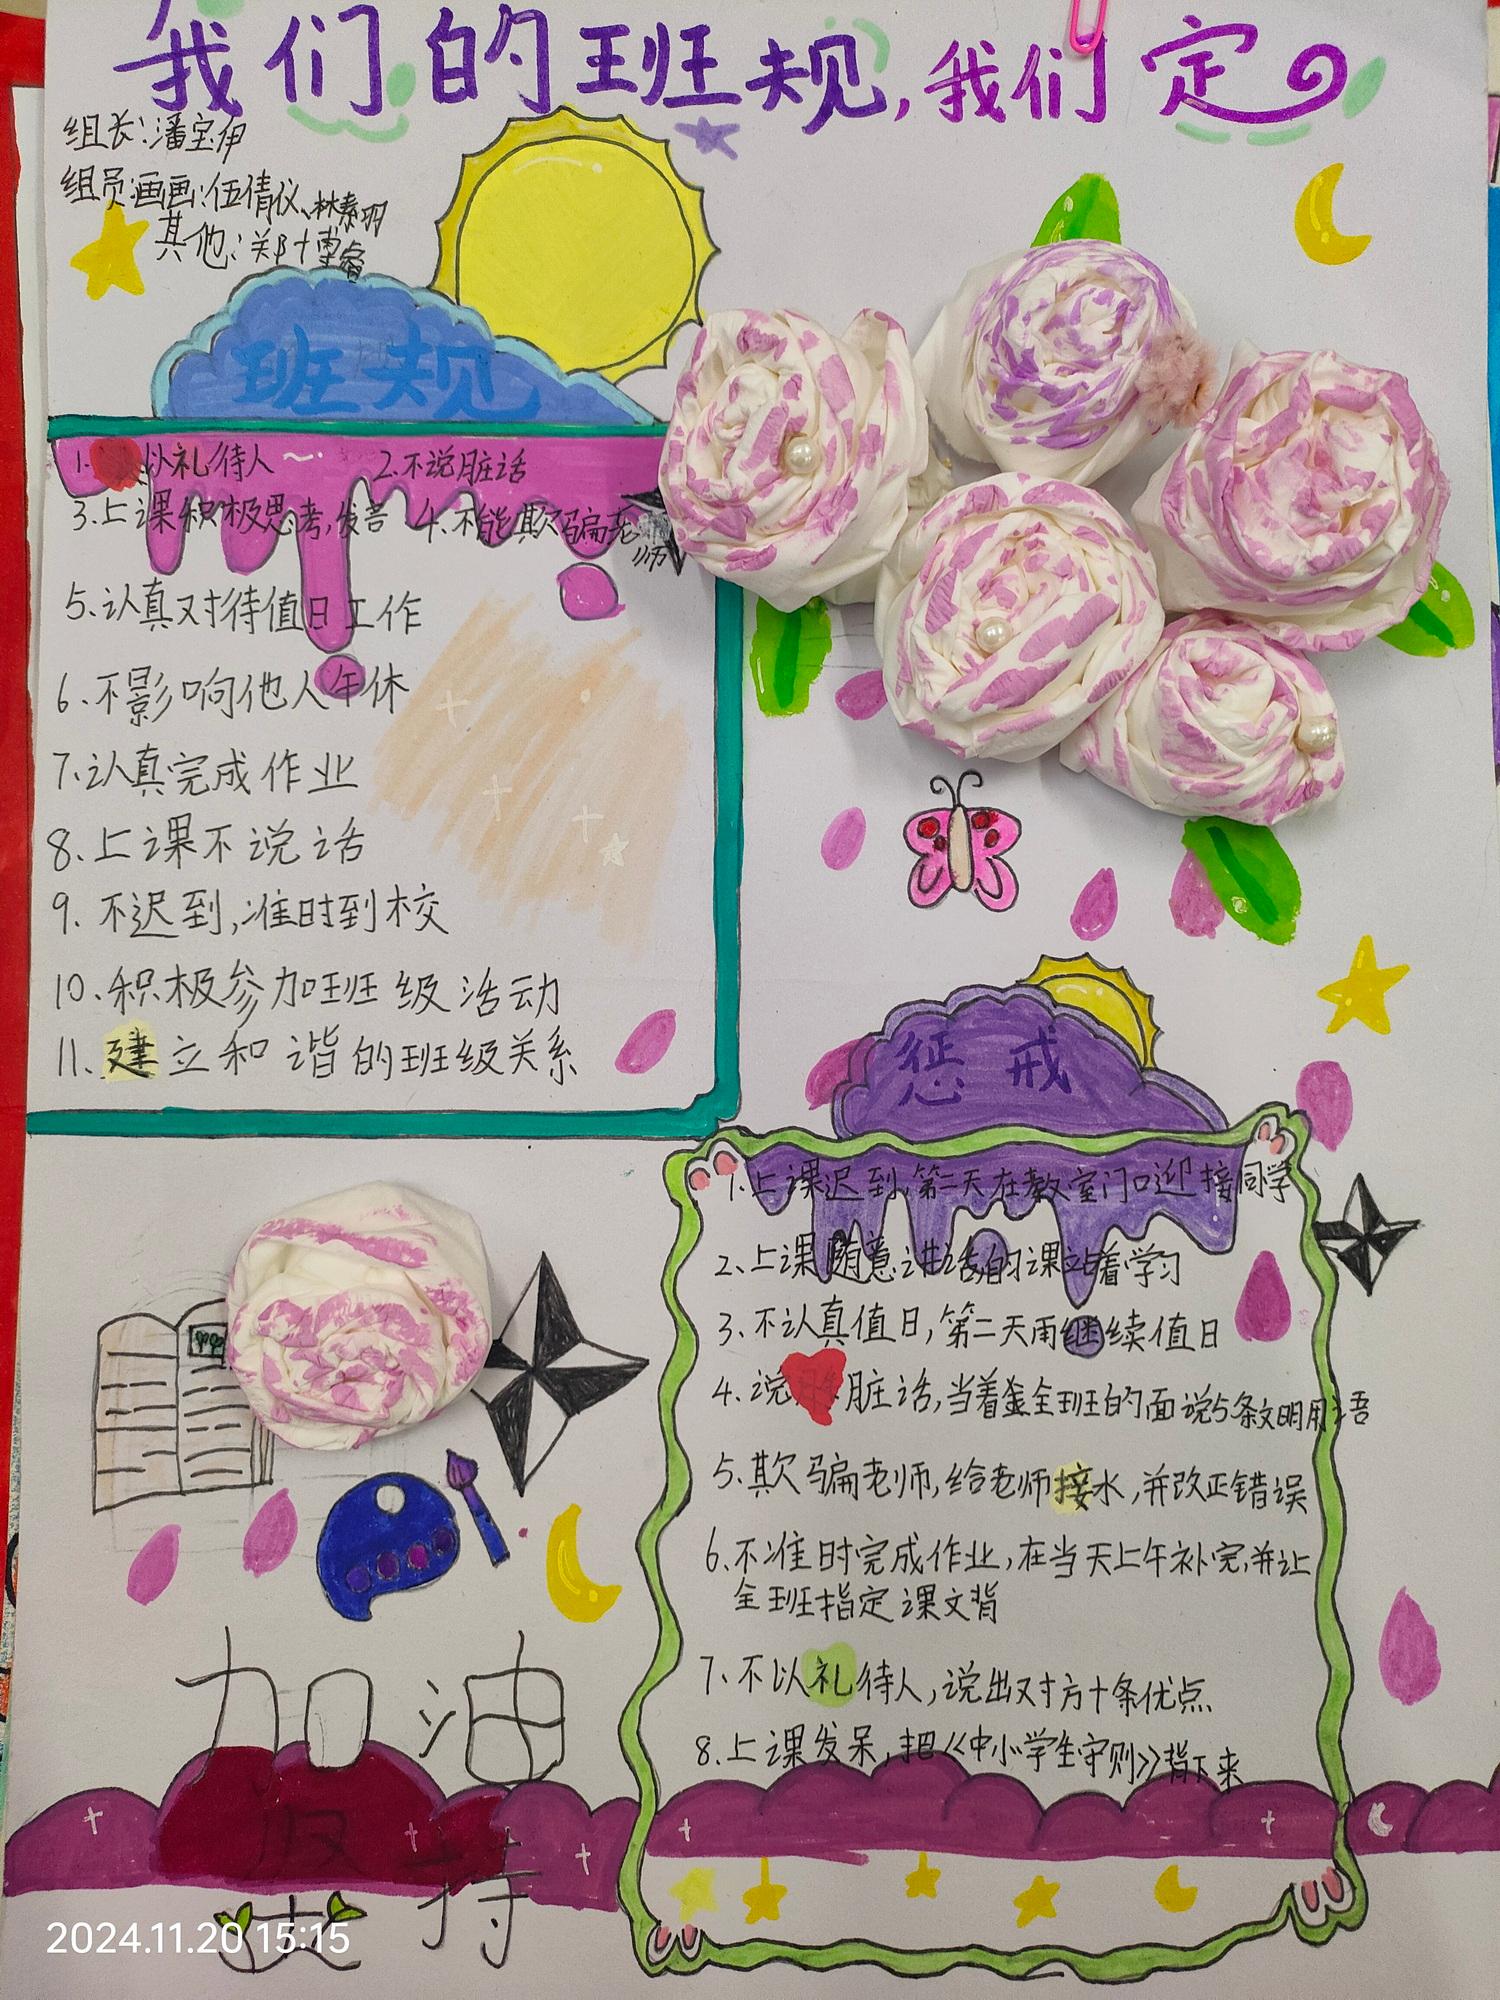 我们的班规,我们定
组长:潘宝伊
组员:画画:伍倩仪、林秦羽
其他:郑博睿
班规
1.以礼待人~· 2.不说脏话
3.上课积极思考,发言 4.不能欺骗老师
5.认真对待值日工作
6.不影响他人午休
7.认真完成作业
8.上课不说话
9.不迟到,准时到校
10.积极参加班级活动
11.建立和谐的班级关系
惩戒
1.上课迟到,第二天在教室门口迎接同学
2.上课随意讲话的课站着学习
3.不认真值日,第二天雨继续值日
4.说脏话,当着全班的面说5条文明用语
5.欺骗老师,给老师接水,并改正错误
6.不准时完成作业,在当天上午补完,并让
全班指定课文背
7.不以礼待人,说出对方十条优点
8.上课发呆,把《中小学生守则》背下来
加油
坚持
2024.11.20 15:15